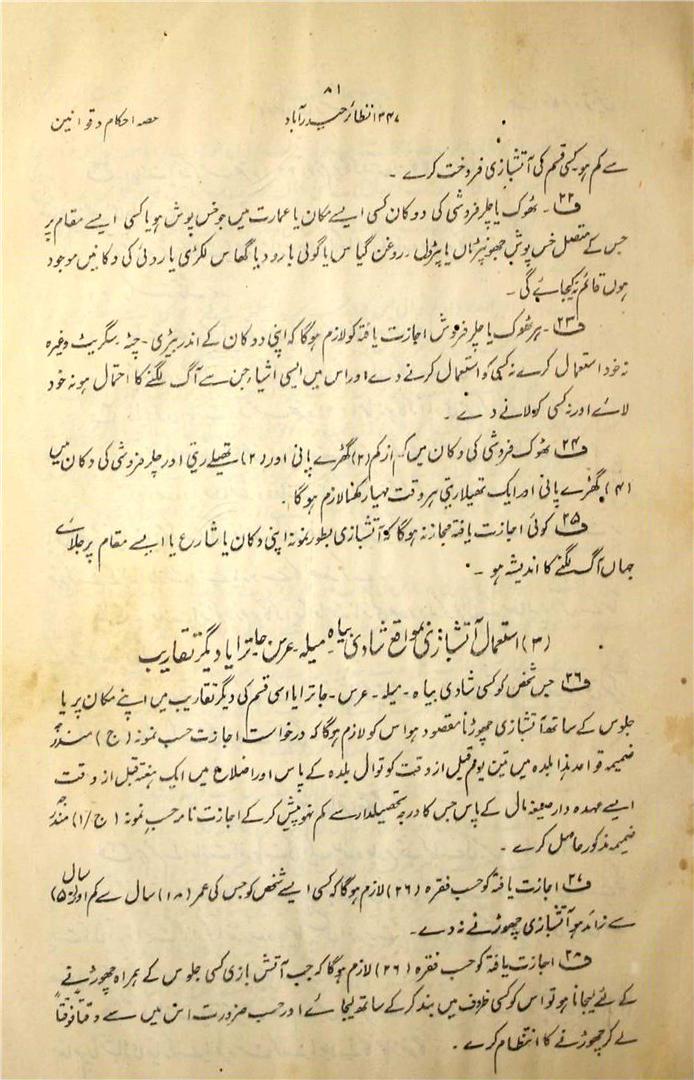 ۸۱
۱۳۴۷ نظائر حیدرآباد
حصہ احکام و قوانین
سے کم ہو کسی قسم کی آتشبازی فروخت کرے ۔
ف۲۲ ۔ ٹھوک یا چلر فروشی کی دوکان کسی ایسے مکان یا عمارت میں جو خس پوش ہو یا کسی ایسے مقام پر
جس کے متصل خس پوش جھونپڑیاں یا پٹرول ۔ روغن گیاس یا گولی بارود یا گھاس لکڑی یا روئی کی دکانیں موجود
ہوں قائم نہ کیجائے گی ۔
ف۲۳ ۔ ہر ٹھوک یا چلر فروش اجازت یافتہ کو لازم ہوگا کہ اپنی دوکان کے اندر بیڑی ۔ چٹہ سگریٹ وغیرہ
نہ خود استعمال کرے نہ کسی کو استعمال کرنے دے اور اس میں ایسی اشیاء جن سے آگ لگنے کا احتمال ہو نہ خود
لائے اور نہ کسی کو لانے دے ۔
ف۲۴ ٹھوک فروشی کی دکان میں کم از کم (۲) گھڑے پانی اور (۲) تھیلے ریتی اور چلر فروشی کی دکان میں
(۴) گھڑے پانی اور ایک تھیلا ریتی ہر وقت مہیا رکھنا لازم ہوگا ۔
ف۲۵ کوئی اجازت یافتہ مجاز نہ ہوگا کہ آتشبازی بطور نمونہ اپنی دکان یا شارع یا ایسے مقام پر جلائے
جہاں آگ لگنے کا اندیشہ ہو ۔
(۳) استعمال آتشبازی بمواقع شادی بیاہ میلہ ۔ عرس جاترا یا دیگر تقاریب
ف۲۶ جس شخص کو کسی شادی بیاہ ۔ میلہ ۔ عرس ۔ جاترا یا اسی قسم کی دیگر تقاریب میں اپنے مکان پر یا
جلوس کے ساتھ آتشبازی چھوڑنا مقصود ہو اس کو لازم ہوگا کہ درخواست اجازت حسب نمونہ (ج) مندرجہ
ضمیمہ قواعد ہذا بلدہ میں تین یوم قبل از وقت کوتوال بلدہ کے پاس اور اضلاع میں ایک ہفتہ قبل از وقت
ایسے عہدہ دار صیغہ مال کے پاس جس کا درجہ تحصیلدار سے کم نہو پیش کر کے اجازت نامہ حسب نمونہ (ج/۱) مندرجہ
ضمیمہ مذکور حاصل کرے ۔
ف۲۷ اجازت یافتہ کو حسب فقرہ (۲۶) لازم ہوگا کہ کسی ایسے شخص کو جس کی عمر (۱۸) سال سے کم اور (۵۰) سال
سے زائد ہو آتشبازی چھوڑنے نہ دے ۔
ف۲۸ اجازت یافتہ کو حسب فقرہ (۲۶) لازم ہوگا کہ جب آتش بازی کسی جلوس کے ہمراہ چھوڑنے
کے لئے لیجانا ہو تو اس کو کسی ظروف میں بند کر کے ساتھ لیجائے اور حسب ضرورت اس میں سے وقتاً فوقتاً
لے کر چھوڑنے کا انتظام کرے ۔